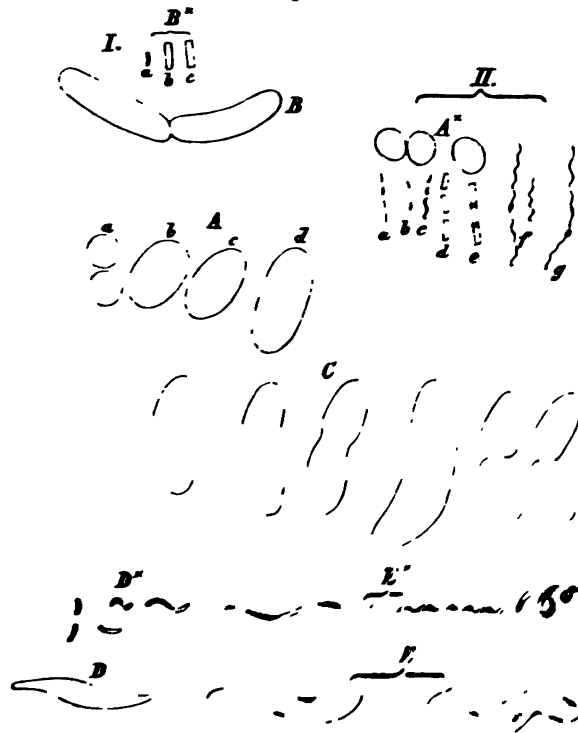 B*
I.
a b c
B
II.
A*
a b c d e f g
A
a b c d
C
D*
E*
D
E